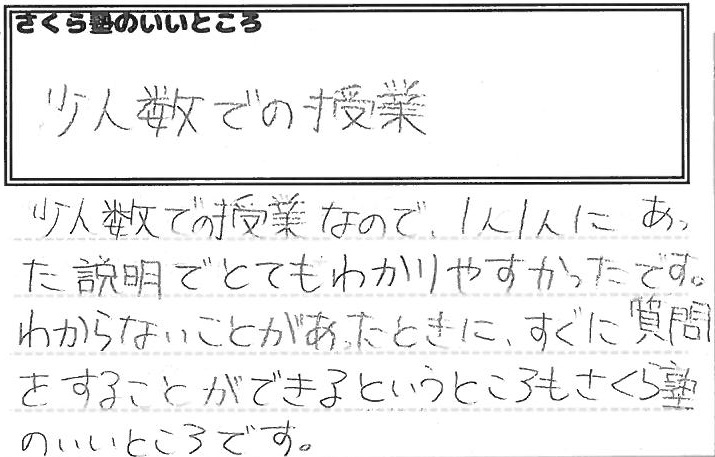 さくら塾のいいところ
少人数での授業
少人数での授業なので、1人1人にあっ
た説明でとてもわかりやすかったです。
わからないことがあったときに、すぐに質問
をすることができるというところもさくら塾
のいいところです。